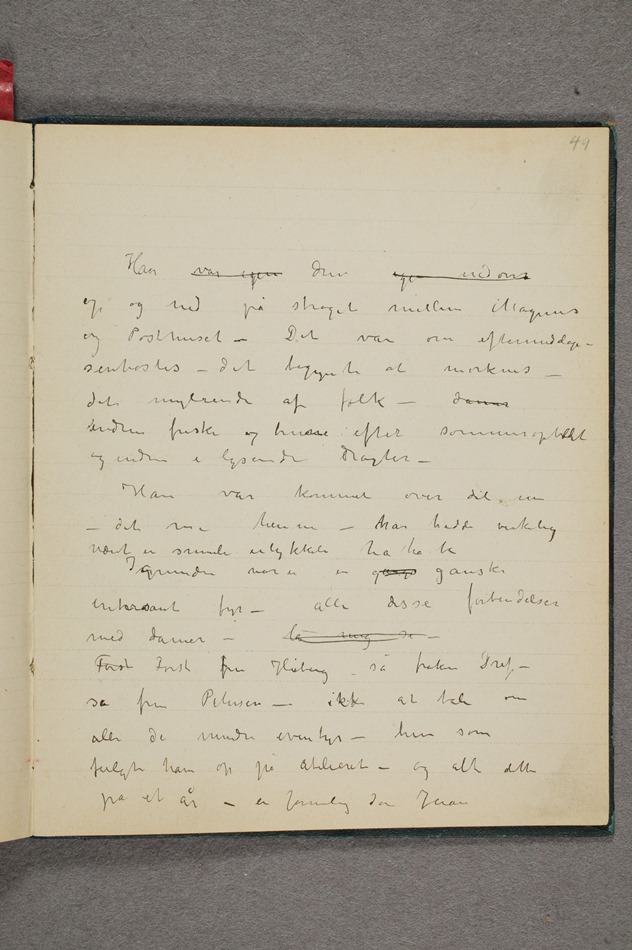 49
Han var igen drev igen nedom
op og ned på strøget mellem Magnus
og Posthuset – Det var om eftermiddagen
senhøstes – det begynte at mørknes –
det myldrende af folk – damer
endnu friske og brune efter sommeropholdt
og endnu i lysende Dragter –
Han var kommet over det nu
– det med henne – han hadde virkelig
været en smule ulykkelig ha ha ha
I grunden var en ganske
interesant fyr – alle disse forbindelser
med damer – la mig se –
Først Først fru Heiberg – så frøken Dref –
så fru Petersen – ikke at tale om
alle de mindre eventyr – hun som
fulgte ham op på Atelieret – og alt dette
på et år – en formelig Don Juan